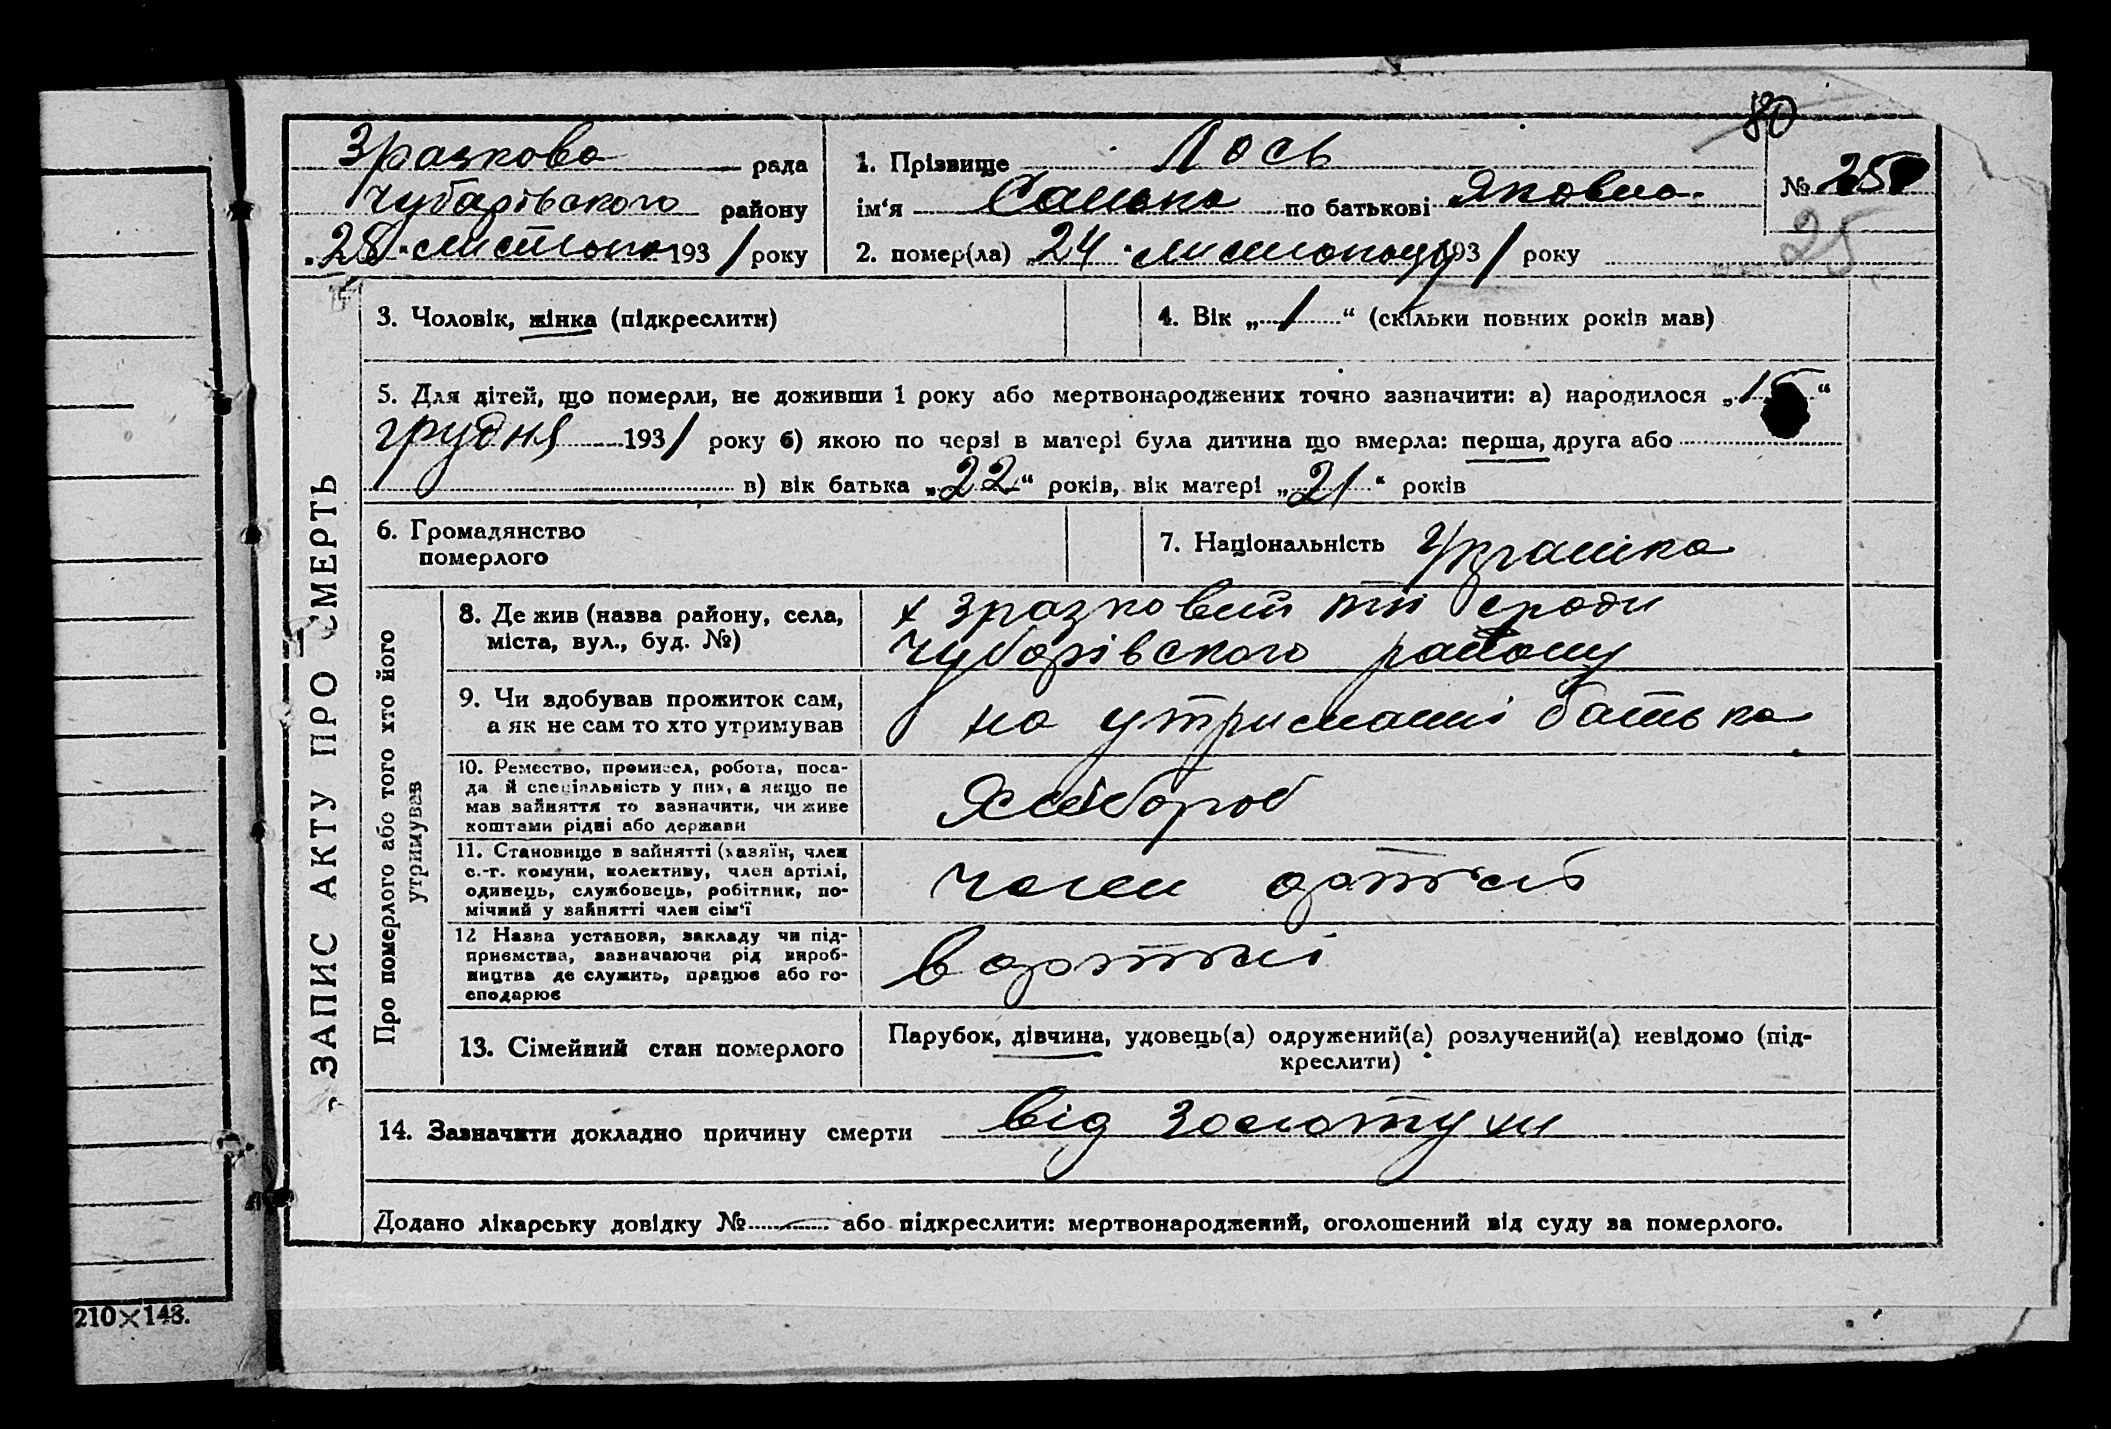 80
Зразкова рада
Чубарівського району
„28" листопа 1931 року
1. Прізвище Лось
ім'я Санька по батькові Яковна
2. помер(ла) „24" листопаду 1931 року
№ 25
25
ЗАПИС АКТУ ПРО СМЕРТЬ
3. Чоловік, жінка (підкреслити)
4. Вік „1" (скільки повних років мав)
5. Для дітей, що померли, не доживши 1 року або мертвонароджених точно зазначити: а) народилося „15"
грудня 1931 року б) якою по черзі в матері була дитина що вмерла: перша, друга або
в) вік батька „22" років, вік матері „21" років
6. Громадянство
померлого
7. Національність Українка
Про померлого або того хто його
утримував
8. Де жив (назва району, село,
міста, вул., буд. №)
х Зразковий сради
Чубарівського району
9. Чи здобував прожиток сам,
а як не сам то хто утримував
на утриманні батька
10. Ремество, промисел, робота, поса-
да й спеціальність у них, а якщо не
мав зайняття то зазначити, чи живе
коштами рідні або держави
Хлібороб
11. Становище в зайнятті (хазяїн, член
с.-г. комуни, колективу, член артілі,
одинець, службовець, робітник, по-
мічний у зайнятті член сім'ї
член артілі
12 Назва установи, закладу чи під-
приємства, зазначаючи рід вироб-
ництва де служить, працює або го-
сподарює
в артілі
13. Сімейний стан померлого
Парубок, дівчина, удовець(а) одружений(а) розлучений(а) невідомо (під-
креслити)
14. Зазначити докладно причину смерти від золотухи
Додано лікарську довідку № — або підкреслити: мертвонароджений, оголошений від суду за померлого.
210×148.